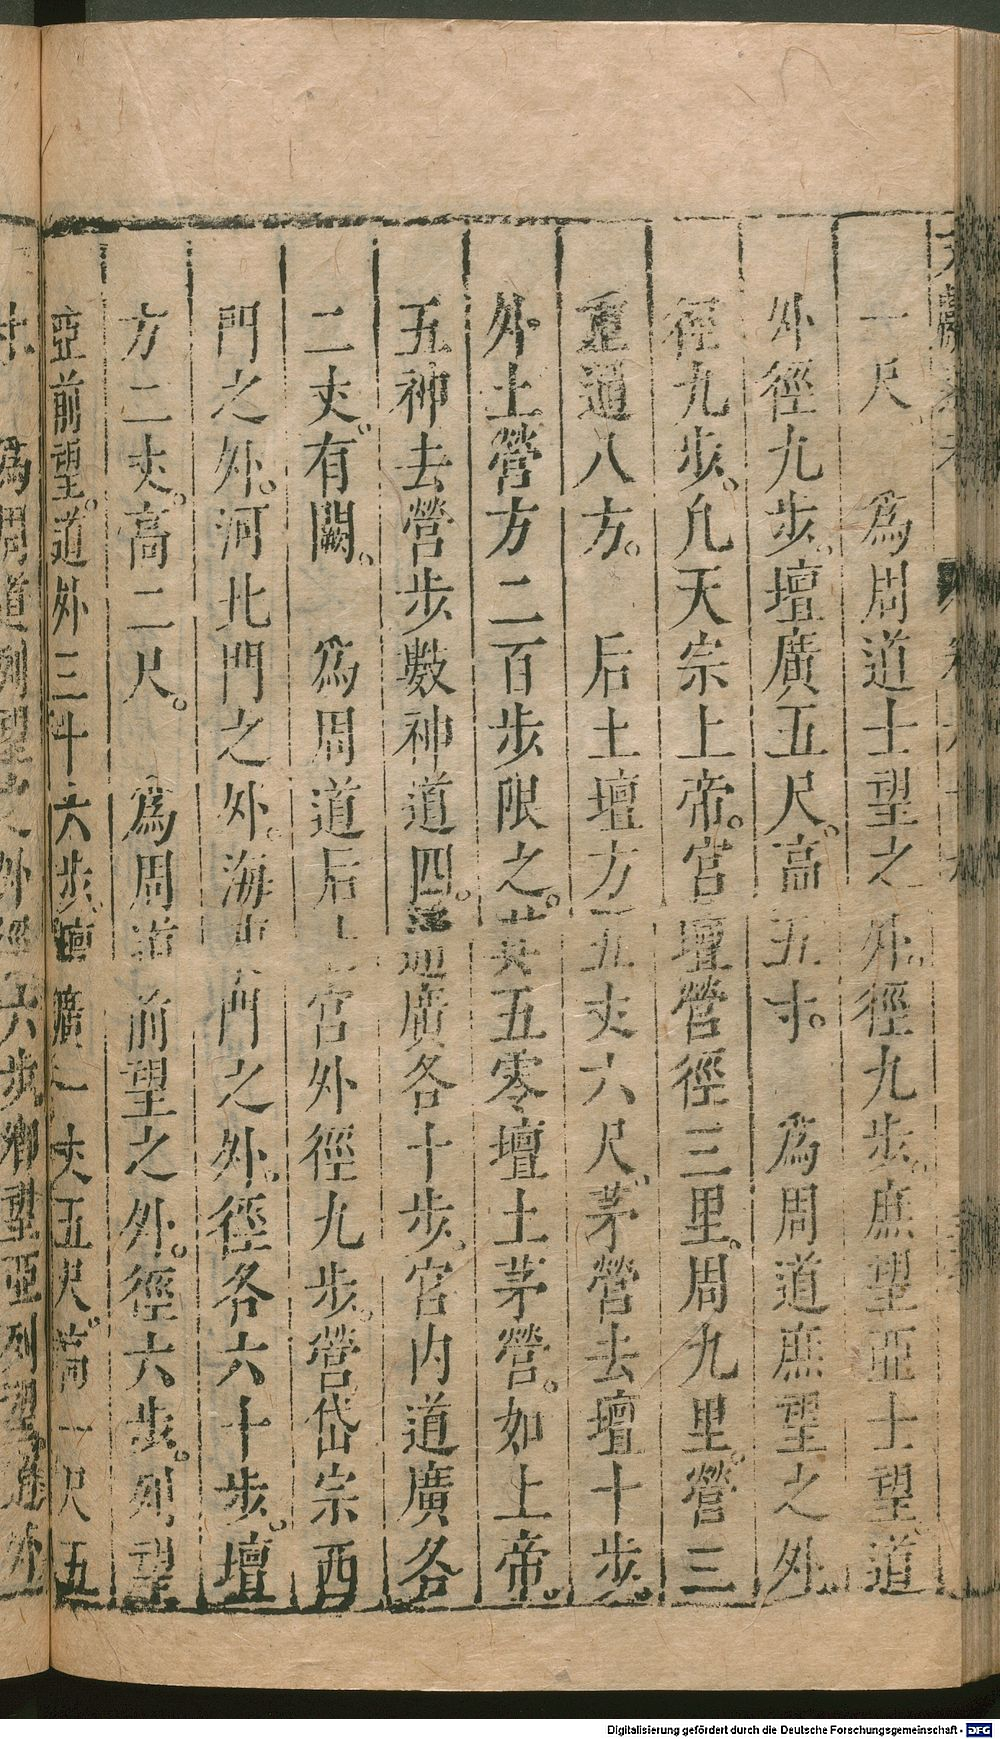 一尺 爲周道士望之外徑九步庶望亞士望道
外徑九步壇廣五尺高五寸 爲周道庶望之外
徑九步凡天宗上帝宮壇營徑三里周九里營三
重通八方 后土壇方五丈六尺茅營去壇十步
外土營方二百步限之其五零壇土茅營如上帝
五神去營步數神道四通廣各十步宮內道廣各
二丈有闕 爲周道后土宮外徑九步營岱宗西
門之外河北門之外海東門之外徑各六十步壇
方二丈高二尺 爲周道前望之外徑六步列望
亞前望道外三十六步壇廣一丈五尺高一尺五
爲周道列望之外徑六步卿望亞列望道外
Digitalisierung gefördert durch die Deutsche Forschungsgemeinschaft - DFG